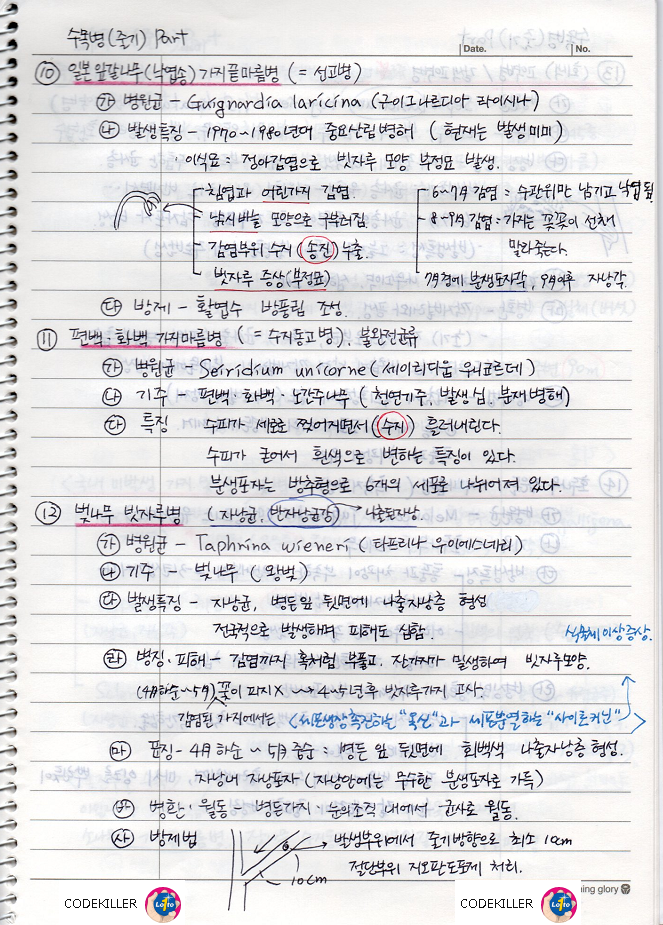 수목병(줄기) Part
Date. No.
⑩ 일본잎갈나무(낙엽송) 가지끝마름병 (= 선고병)
㉮ 병원균 - Guignardia laricina (구이그나르디아 라이시나)
㉯ 발생특징 - 1970~1980년대 중요산림병해 (현재는 발생미미)
: 이식묘 = 정아감염으로 빗자루 모양 부정묘 발생.
침엽과 어린가지 감염.
낚시바늘 모양으로 구부러짐.
감염부위 수지 (송진) 누출.
빗자루 증상(부정묘)
6~7月 감염 = 수관위만 남기고 낙엽됨
8~9月 감염 = 가지는 꼿꼿이 선채
말라죽는다.
7月경에 분생포자각, 9月이후 자낭각.
㉰ 방제 - 활엽수 방풍림 조성.
⑪ 편백·화백 가지마름병 (= 수지동고병), 불완전균류
㉮ 병원균 - Seiridium unicorne (세이리디움 유니코르데)
㉯ 기주 편백·화백·노간주나무 (천연기주, 발생심, 분재병해)
㉰ 특징 수피가 세로로 찢어지면서 (수지) 흘러내린다.
수피가 굳어서 흰색으로 변하는 특징이 있다.
분생포자는 방추형으로 6개의 세포로 나뉘어져 있다.
⑫ 벚나무 빗자루병 (자낭균, 반자낭균강) → 나출된자낭.
㉮ 병원균 - Taphrina wieneri (타프리나 우이에스네리)
㉯ 기주 - 벚나무 (왕벚)
㉰ 발생특징 - 자낭균, 병든잎 뒷면에 나출자낭층 형성
전국적으로 발생하며 피해도 심함.
식물체 이상증상.
㉱ 병징·피해 - 감염가지 혹처럼 부풀고, 잔가지가 밀생하여 빗자루모양.
(4月하순~5月) 꽃이 피지X → 4~5년후 빗자루가지 고사.
감염된 가지에서는 (세포생장촉진하는 "옥신"과 세포분열하는 "사이토키닌")
㉲ 표징 - 4月 하순 ~ 5月 중순 : 병든 잎 뒷면에 회백색 나출자낭층 형성.
자낭내 자낭포자 (자낭안에는 무수한 분생포자로 가득)
㉳ 병환·월동 병든가지·눈의조직 내에서 균사로 월동.
㉴ 방제법
발생부위에서 줄기방향으로 최소 10cm
절단부위 지오판도포제 처리.
10cm
ning glory
CODEKILLER Lotto
CODEKILLER Lotto